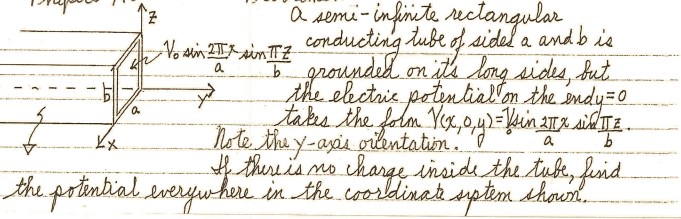 a semi-infinite rectangular
conducting tube of sides a and b is
grounded on it's long sides, but
the electric potential on the end y=0
takes the form V(x,0,y)=V₀sin 2πx/a sin πz/b.
Note the y-axis orientation.
If there is no charge inside the tube, find
the potential everywhere in the coordinate system shown.
z
V₀ sin 2πx/a sin πz/b
b
a
y
x